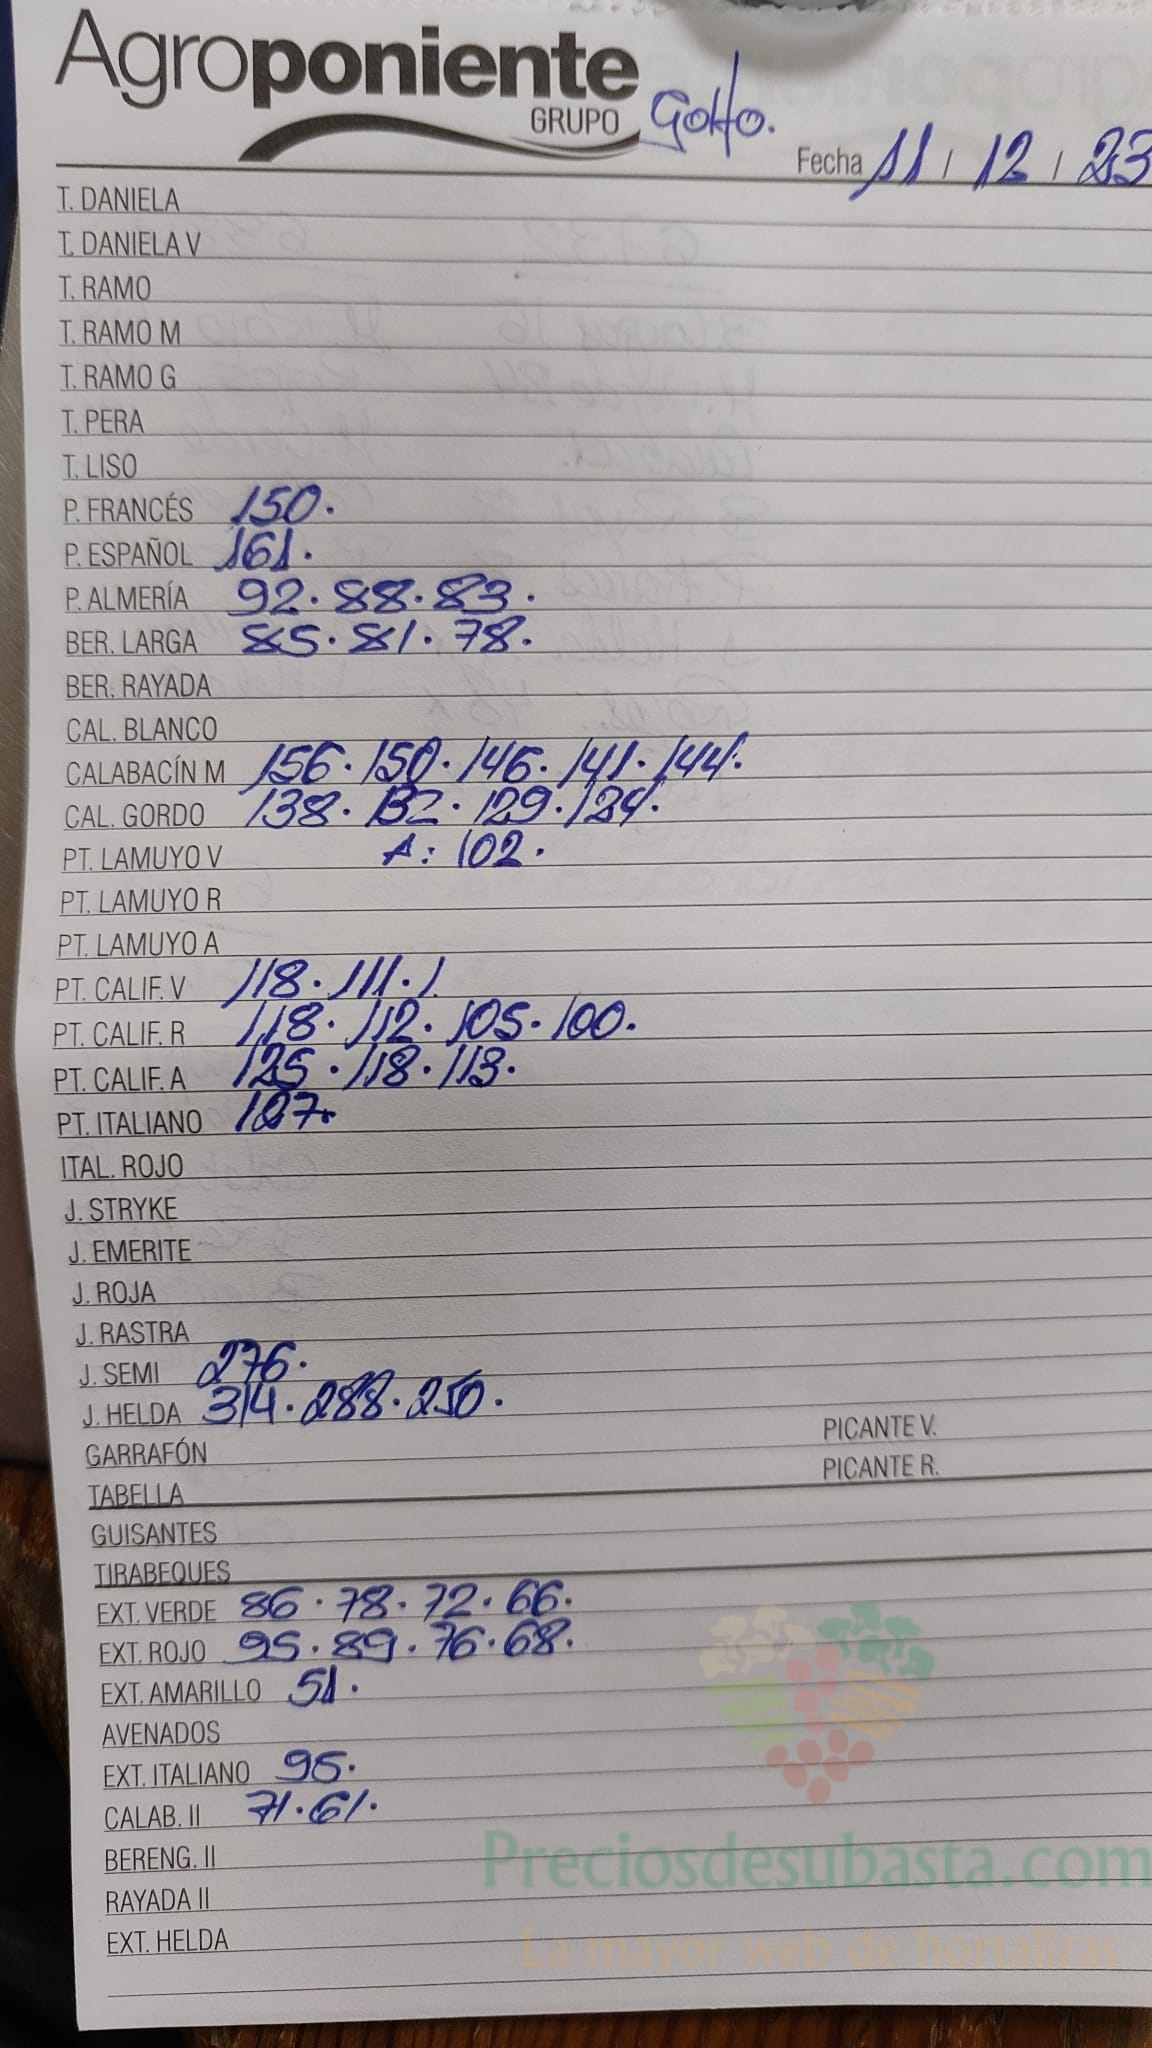 Agroponiente
GRUPO
Golfo.
Fecha 11 / 12 / 23
T. DANIELA
T. DANIELA V
T. RAMO
T. RAMO M
T. RAMO G
T. PERA
T. LISO
P. FRANCÉS 150.
P. ESPAÑOL 161.
P. ALMERÍA 92. 88. 83.
BER. LARGA 85. 81. 78.
BER. RAYADA
CAL. BLANCO
CALABACÍN M 156. 150. 146. 141. 144.
CAL. GORDO 138. 132. 129. 124.
PT. LAMUYO V A: 102.
PT. LAMUYO R
PT. LAMUYO A
PT. CALIF. V 118. 111. 1
PT. CALIF. R 118. 112. 105. 100.
PT. CALIF. A 125. 118. 113.
PT. ITALIANO 127.
ITAL. ROJO
J. STRYKE
J. EMERITE
J. ROJA
J. RASTRA
J. SEMI 276.
J. HELDA 314. 288. 250.
PICANTE V.
GARRAFÓN
PICANTE R.
TABELLA
GUISANTES
TIRABEQUES
EXT. VERDE 86. 78. 72. 66.
EXT. ROJO 95. 89. 76. 68.
EXT. AMARILLO 51.
AVENADOS
EXT. ITALIANO 95.
CALAB. II 71. 61.
BERENG. II
RAYADA II
EXT. HELDA
Preciosdesubasta.com
La mayor web de hortalizas